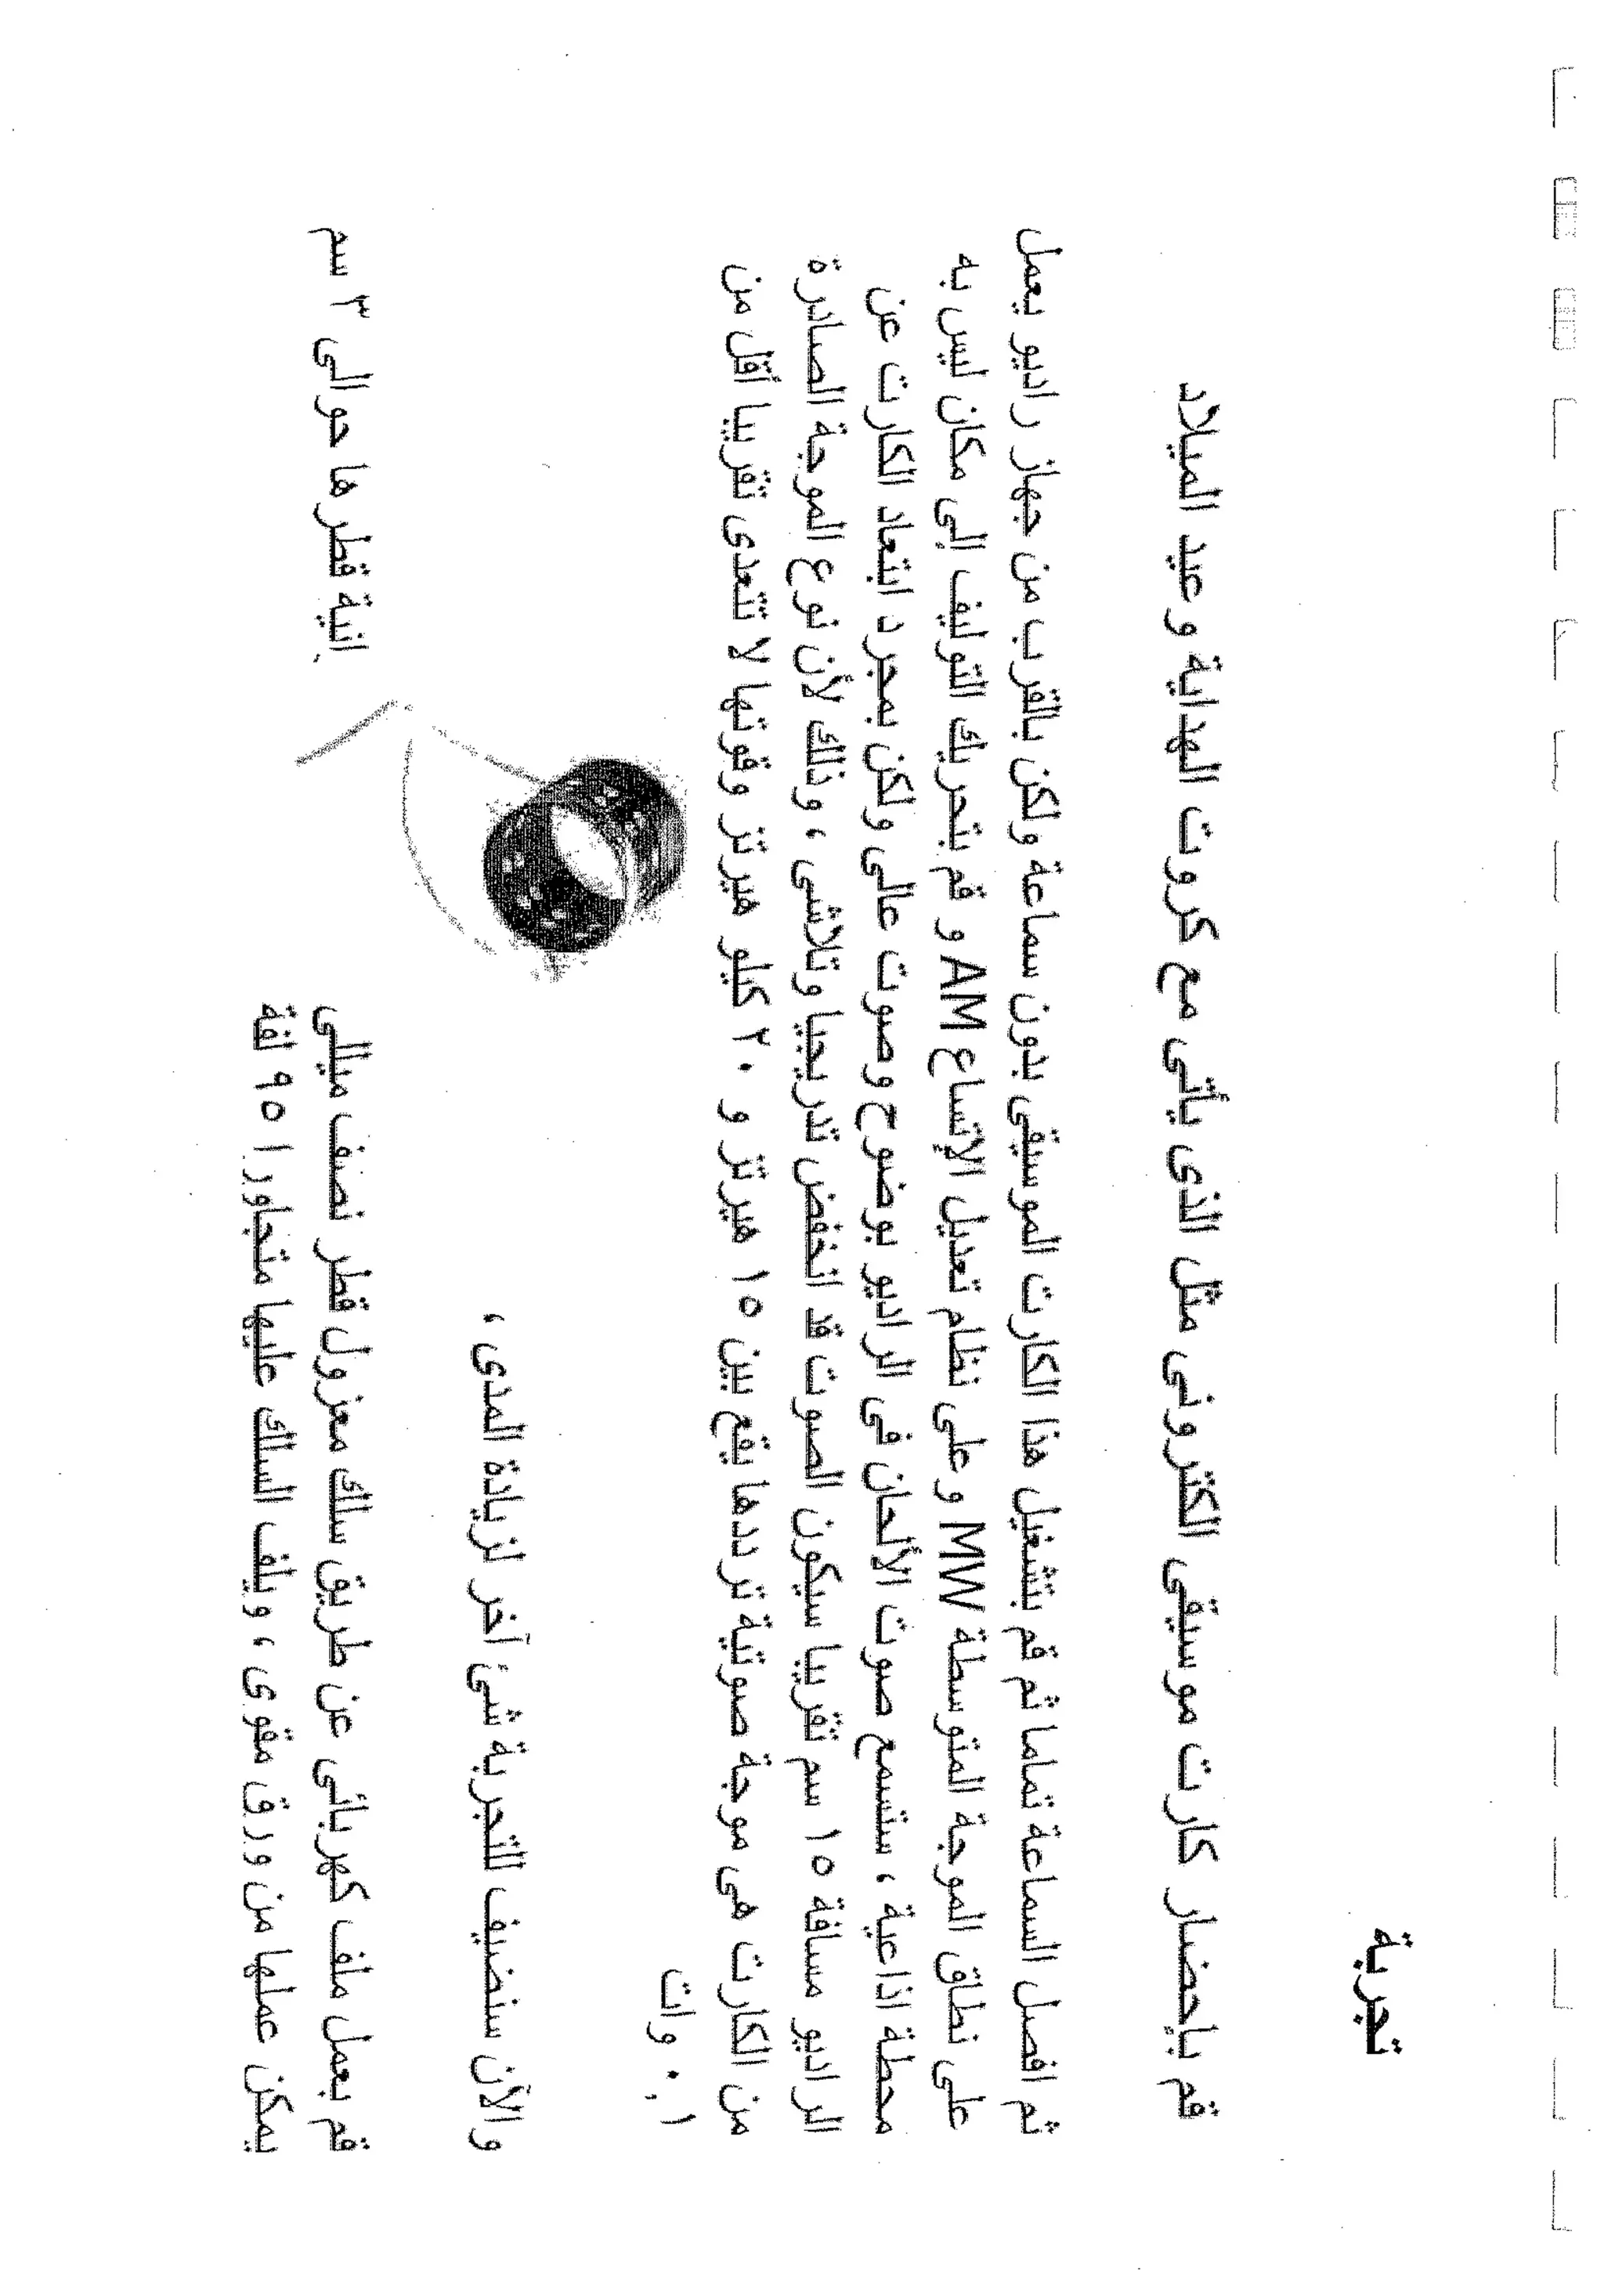 تجربة
قم بإحضار كارت موسيقى الكترونى مثل الذى يأتى مع كروت الهداية وعيد الميلاد
ثم افصل السماعة تماما ثم قم بتشغيل هذا الكارت الموسيقى بدون سماعة ولكن بالقرب من جهاز راديو يعمل
على نطاق الموجة المتوسطة MW وعلى نظام تعديل الإتساع AM و قم بتحريك التوليف إلى مكان ليس به
محطة اذاعية ، ستسمع صوت الألحان فى الراديو بوضوح وصوت عالى ولكن بمجرد ابتعاد الكارت عن
الراديو مسافة ١٥ سم تقريبا سيكون الصوت قد انخفض تدريجيا وتلاشى ، وذلك لأن نوع الموجة الصادرة
من الكارت هى موجة صوتية ترددها يقع بين ١٥ هيرتز و ٢٠ كيلو هيرتز وقوتها لا تتعدى تقريبا أقل من
٠,١ وات
والأن سنضيف للتجربة شئ آخر لزيادة المدى ،
قم بعمل ملف كهربائى عن طريق سلك معزول قطر نصف ميللى
انية قطرها حوالى ٣ سم
يمكن عملها من ورق مقوى ، ويلف السلك عليها متجاورا ٩٥ لفة